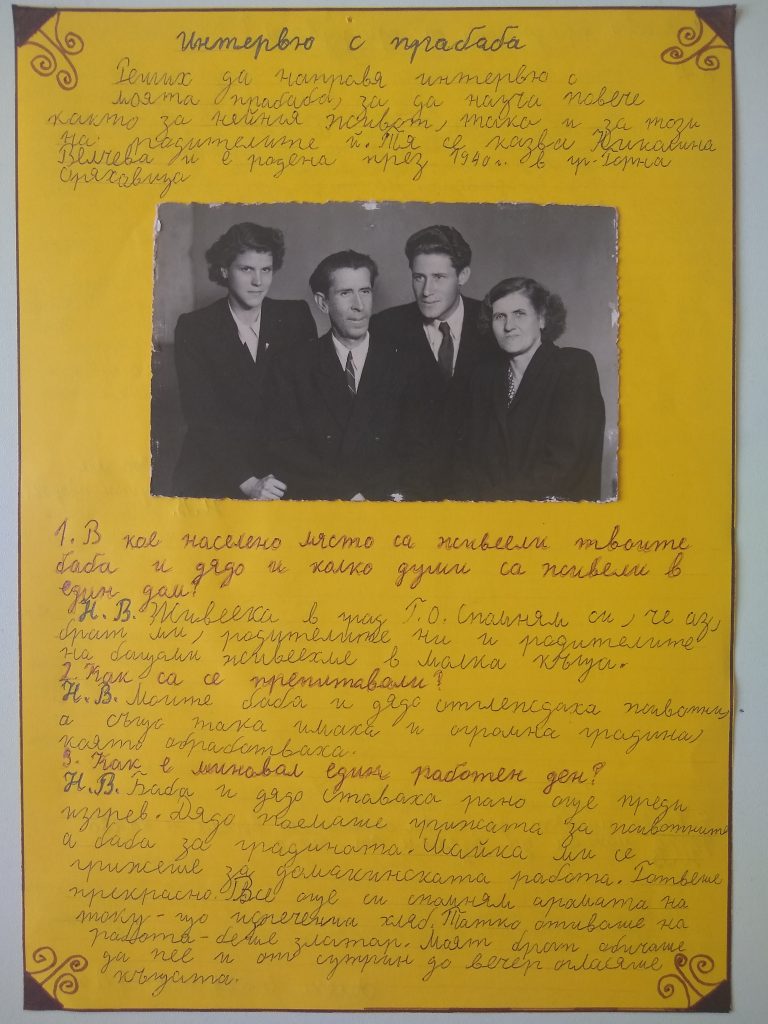 Интервю с прабаба
Реших да направя интервю с
моята прабаба, за да науча повече
както за нейния живот, така и за този
на родителите й. Тя се казва
Велчева и е родена през 1940 г. в гр. Горна
Оряховица
1. В кое населено място са живеели твоите
баба и дядо и колко души са живели в
един дом?
Н. В. Живееха в град Г.О. Спомням си, че аз,
брат ми, родителите ни и родителите
на баща ми живеехме в малка къща.
2. Как са се препитавали?
Н. В. Моите баба и дядо отглеждаха животни,
а също така имаха и огромна градина,
която обработваха.
3. Как е минавал един работен ден?
Н. В. Баба и дядо ставаха рано още преди
изгрев. Дядо поемаше грижата за животните
а баба за градината. Майка ми се
грижеше за домакинската работа. Готвеше
прекрасно. Все още си спомням аромата на
току-що изпечения хляб. Татко отиваше на
работа - беше златар. Моят брат обичаше
да пее и от сутрин до вечер огласяше
къщата.